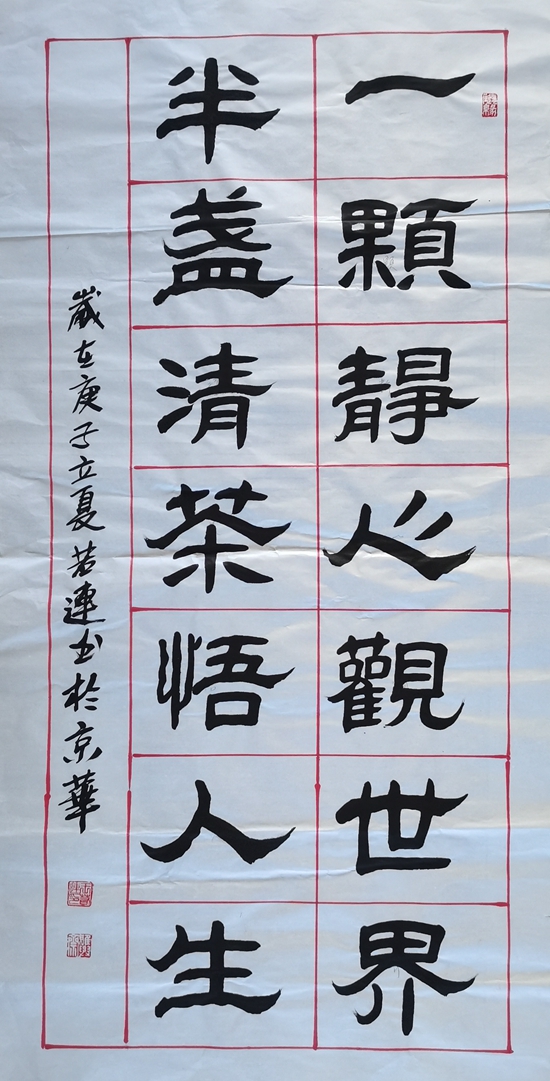 一顆靜心觀世界
半盞清茶悟人生
歲在庚子立夏若連书於京華